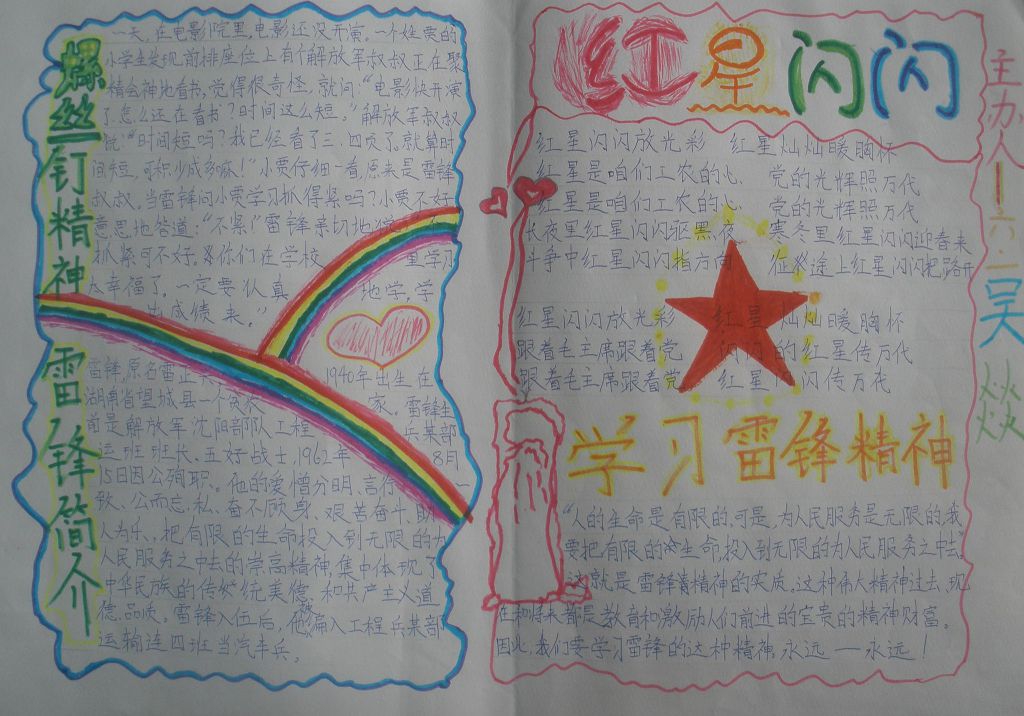 螺丝钉精神
一天,在电影院里,电影还没开演。一个姓贾的
小学生发现前排座位上有个解放军叔叔正在聚
精会神地看书,觉得很奇怪,就问:“电影快开演
了,怎么还在看书?时间这么短。”解放军叔叔
说:“时间短吗?我已经看了三、四页了,就算时
间短,可积少成多嘛!”小贾仔细一看,原来是雷锋
叔叔,当雷锋问小贾学习抓得紧吗?小贾不好
意思地答道:“不紧!”雷锋亲切地
抓紧可不好,你们在学校 里学习
太幸福了。一定要认真 地学,学
出成绩来。”
雷锋简介
雷锋,原名雷正兴 1940年出生在
湖南省望城县一个贫农 家。雷锋生
前是解放军沈阳部队工程 兵某部
运 班班长、五好战士,1962年 8月
15日因公殉职。他的爱憎分明、言行一
致、公而忘私、奋不顾身、艰苦奋斗、助
人为乐、把有限的生命投入到无限的为
人民服务之中去的崇高精神,集中体现了
中华民族的传统美德和共产主义道
德品质。雷锋入伍后,他被编入工程兵某部
运输连四班当汽车兵。
红星闪闪
红星闪闪放光彩 红星灿灿暖胸怀
红星是咱们工农的心 党的光辉照万代
红星是咱们工农的心 党的光辉照万代
长夜里红星闪闪驱黑夜 寒冬里红星闪闪迎春来
斗争中红星闪闪指方向 征途上红星闪闪把路开
红星闪闪放光彩 红星灿灿暖胸怀
跟着毛主席跟着党 闪闪的红星传万代
跟着毛主席跟着党 红星闪闪传万代
学习雷锋精神
“人的生命是有限的,可是,为人民服务是无限的,我
要把有限的生命,投入到无限的为人民服务之中去”
这就是雷锋精神的实质。这种伟大精神过去、现
在和将来都是教育和激励人们前进的宝贵的精神财富。
因此,我们要学习雷锋的这种精神,永远——永远!
主办人——六·二吴燚